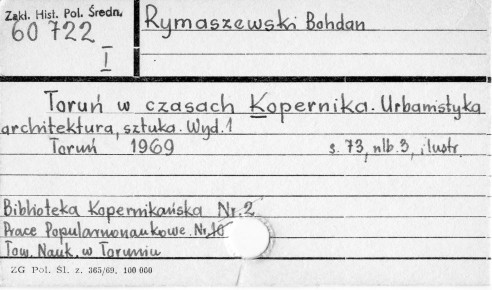 Zakł. Hist. Pol. Średn.
60 722
I
Rymaszewski Bohdan
Toruń w czasach Kopernika. Urbanistyka
architektura, sztuka. Wyd. 1
Toruń 1969 s. 73, nlb. 3, ilustr.
Biblioteka Kopernikańska Nr. 2
Prace Popularnonaukowe. Nr. 10
Tow. Nauk. w Toruniu
ZG Pol. Śl. z. 365/69. 100 000